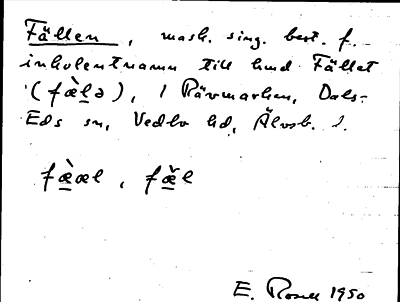 Fällen, mask. sing. best. f.
inbolentnamn till hmd Fället
(fæ̀lə), i Rävmarken, Dals-
Eds sn, Vedbo hd, Älvsb. l.
fæ̀æl, fæ̌l
E. Rosell 1950